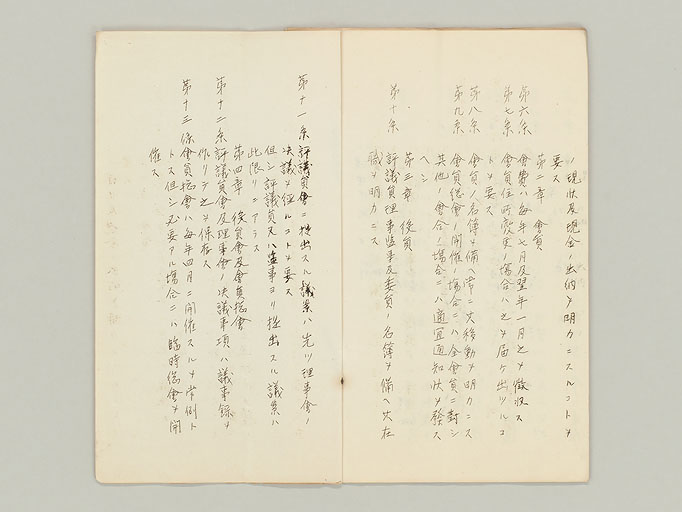 ノ現状及現金ノ出納ヲ明カニスルコトヲ
要ス
第二章 會員
第六条 會費ハ毎年七月及翌年一月之ヲ徴收ス
第七条 會員住所変更ノ場合ハ之ヲ届ケ出ツルコ
トヲ要ス
第八条 會員ノ名簿ヲ備ヘ常ニ其移動ヲ明カニス
第九条 會員総會ノ開催ノ場合ニハ全會員ニ對シ
其他ノ會合ノ場合ニハ適宜通知状ヲ發ス
ヘシ
第三章 役員
第十条 評議員理事監事及委員ノ名簿ヲ備ヘ其在
職ヲ明カニス
第十一条 評議員會ニ提出スル議案ハ先ツ理事會ノ
决議ヲ経ルコトヲ要ス
但シ評議員又ハ監事ヨリ提出スル議案ハ
此限リニアラス
第四章 役員會及會員総會
第十二条 評議員會及理事會ノ决議事項ハ議事録ヲ
作リテ之ヲ保存ス
第十三条 會員総會ハ毎年四月ニ開催スルヲ常例ト
トス但シ必要アル場合ニハ臨時総會ヲ開
催ス